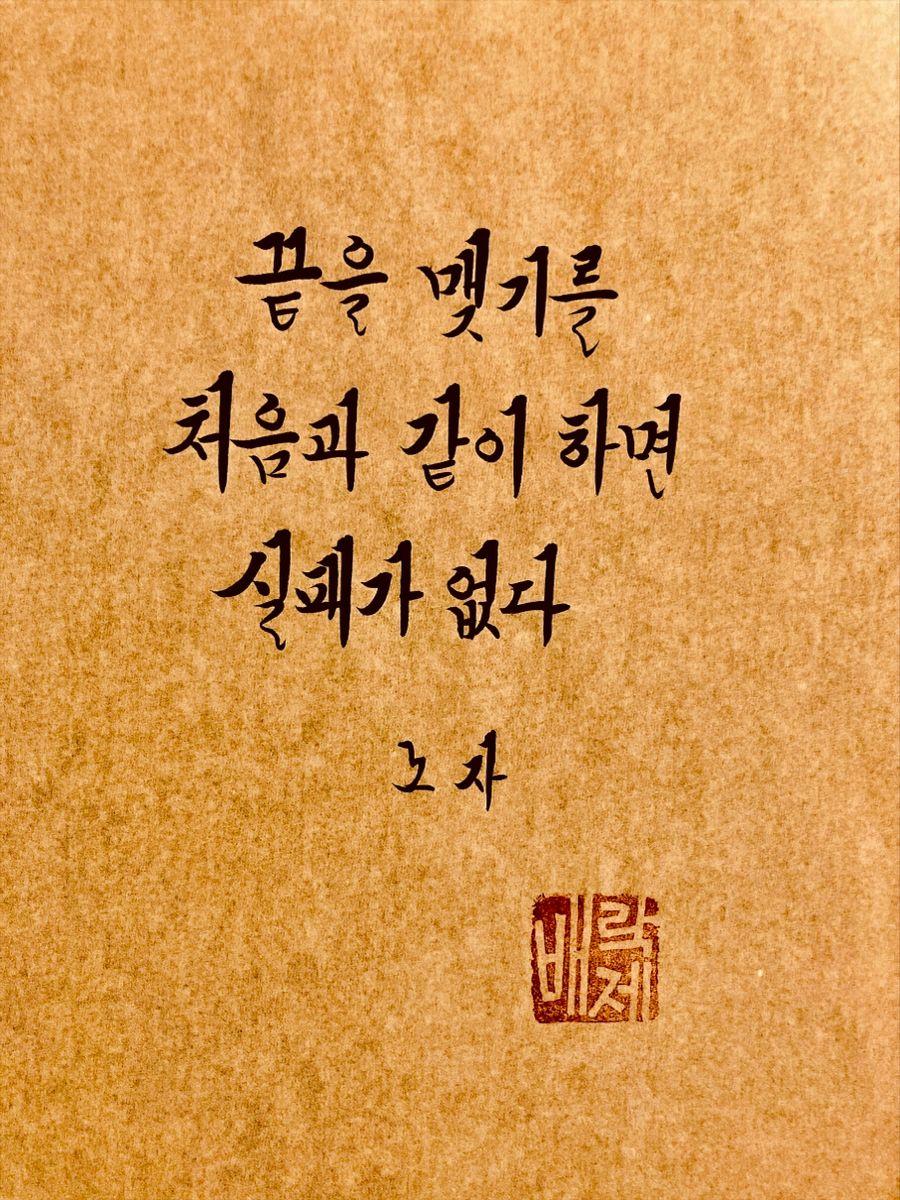 끝을 맺기를
처음과 같이 하면
실패가 없다
노자
배락제